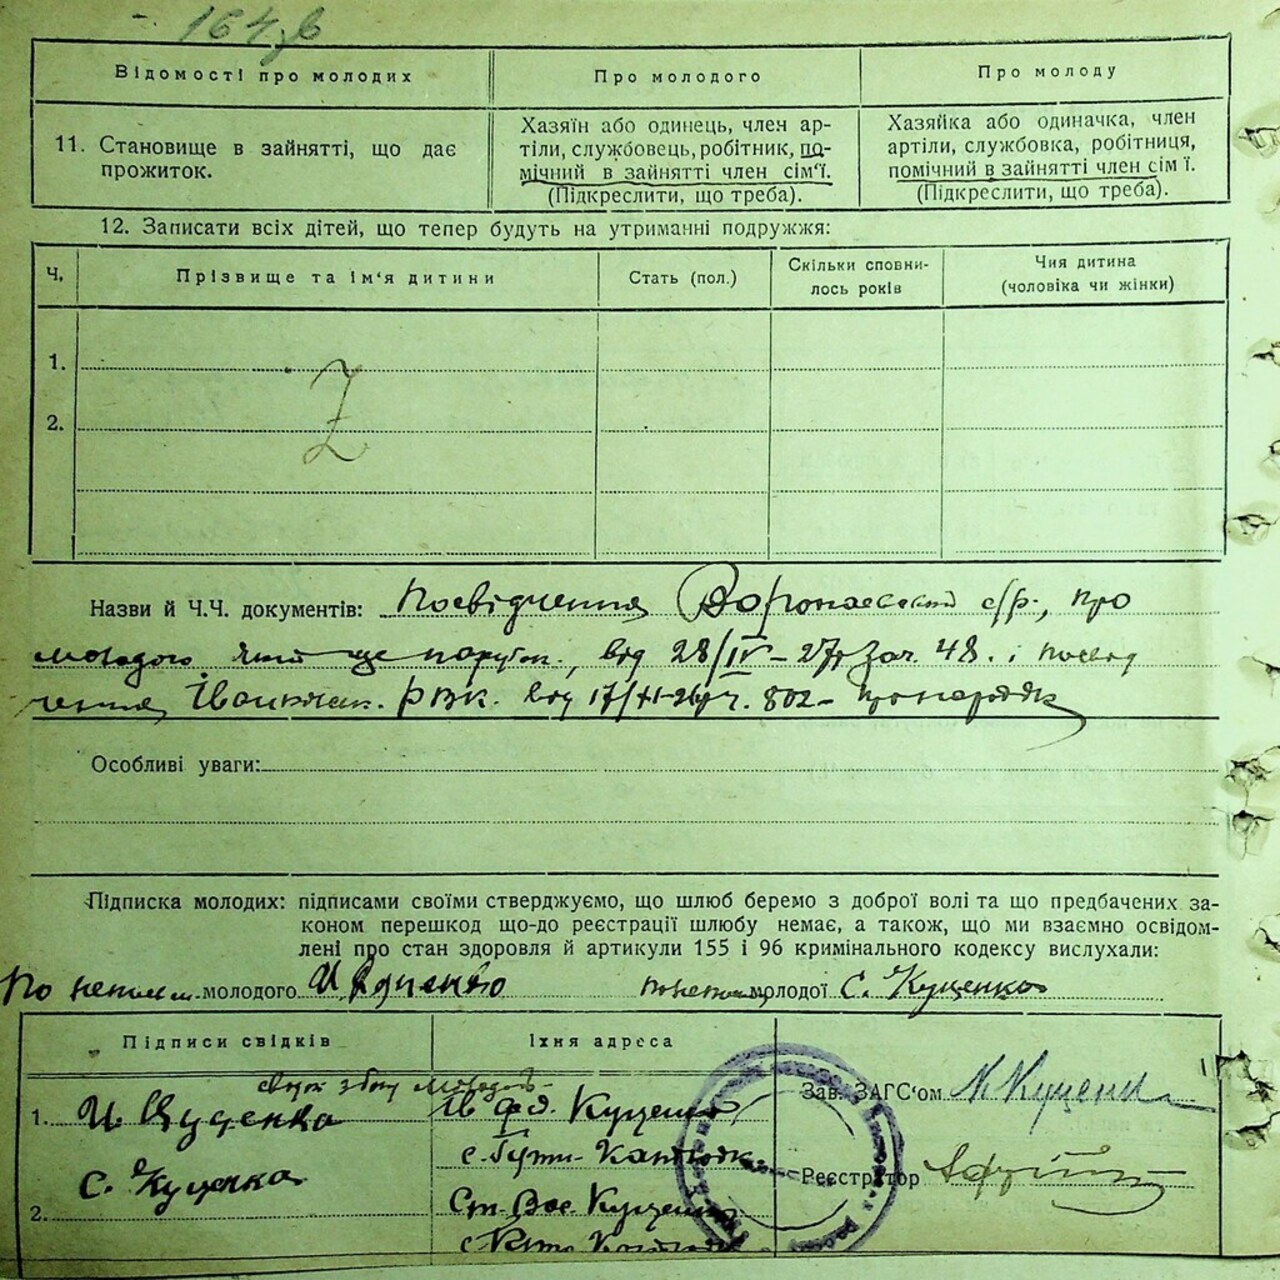 164 зв
Відомості про молодих
Про молодого
Про молоду
11. Становище в зайнятті, що дає прожиток.
Хазяїн або одинець, член ар-
тіли, службовець, робітник, по-
мічний в зайнятті член сім'ї.
(Підкреслити, що треба).
Хазяйка або одиначка, член
артіли, службовка, робітниця,
помічний в зайнятті член сім'ї.
(Підкреслити, що треба).
12. Записати всіх дітей, що тепер будуть на утриманні подружжя:
Ч.
Прізвище та ім'я дитини
Стать (пол.)
Скільки сповни-
лось років
Чия дитина
(чоловіка чи жінки)
1.
2.
Z
Назви й Ч.Ч. документів: Посвідчення с/р., про
молодого який ще парубок., від 28/IV-27р за ч. 48. і посвід
чення РВК. від 17/XI-26р ч. 802-
Особливі уваги:
Підписка молодих: підписами своїми стверджуємо, що шлюб беремо з доброї волі та що предбачених за-
коном перешкод що-до реєстрації шлюбу немає, а також, що ми взаємно освідом-
лені про стан здоровля й артикули 155 і 96 кримінального кодексу вислухали:
молодого молодої С. Куценко
Підписи свідків
Їхня адреса
1.
С. Куценко
2.
Ів Куценко
Куценко
Зав. ЗАГС'ом
Реєстратор